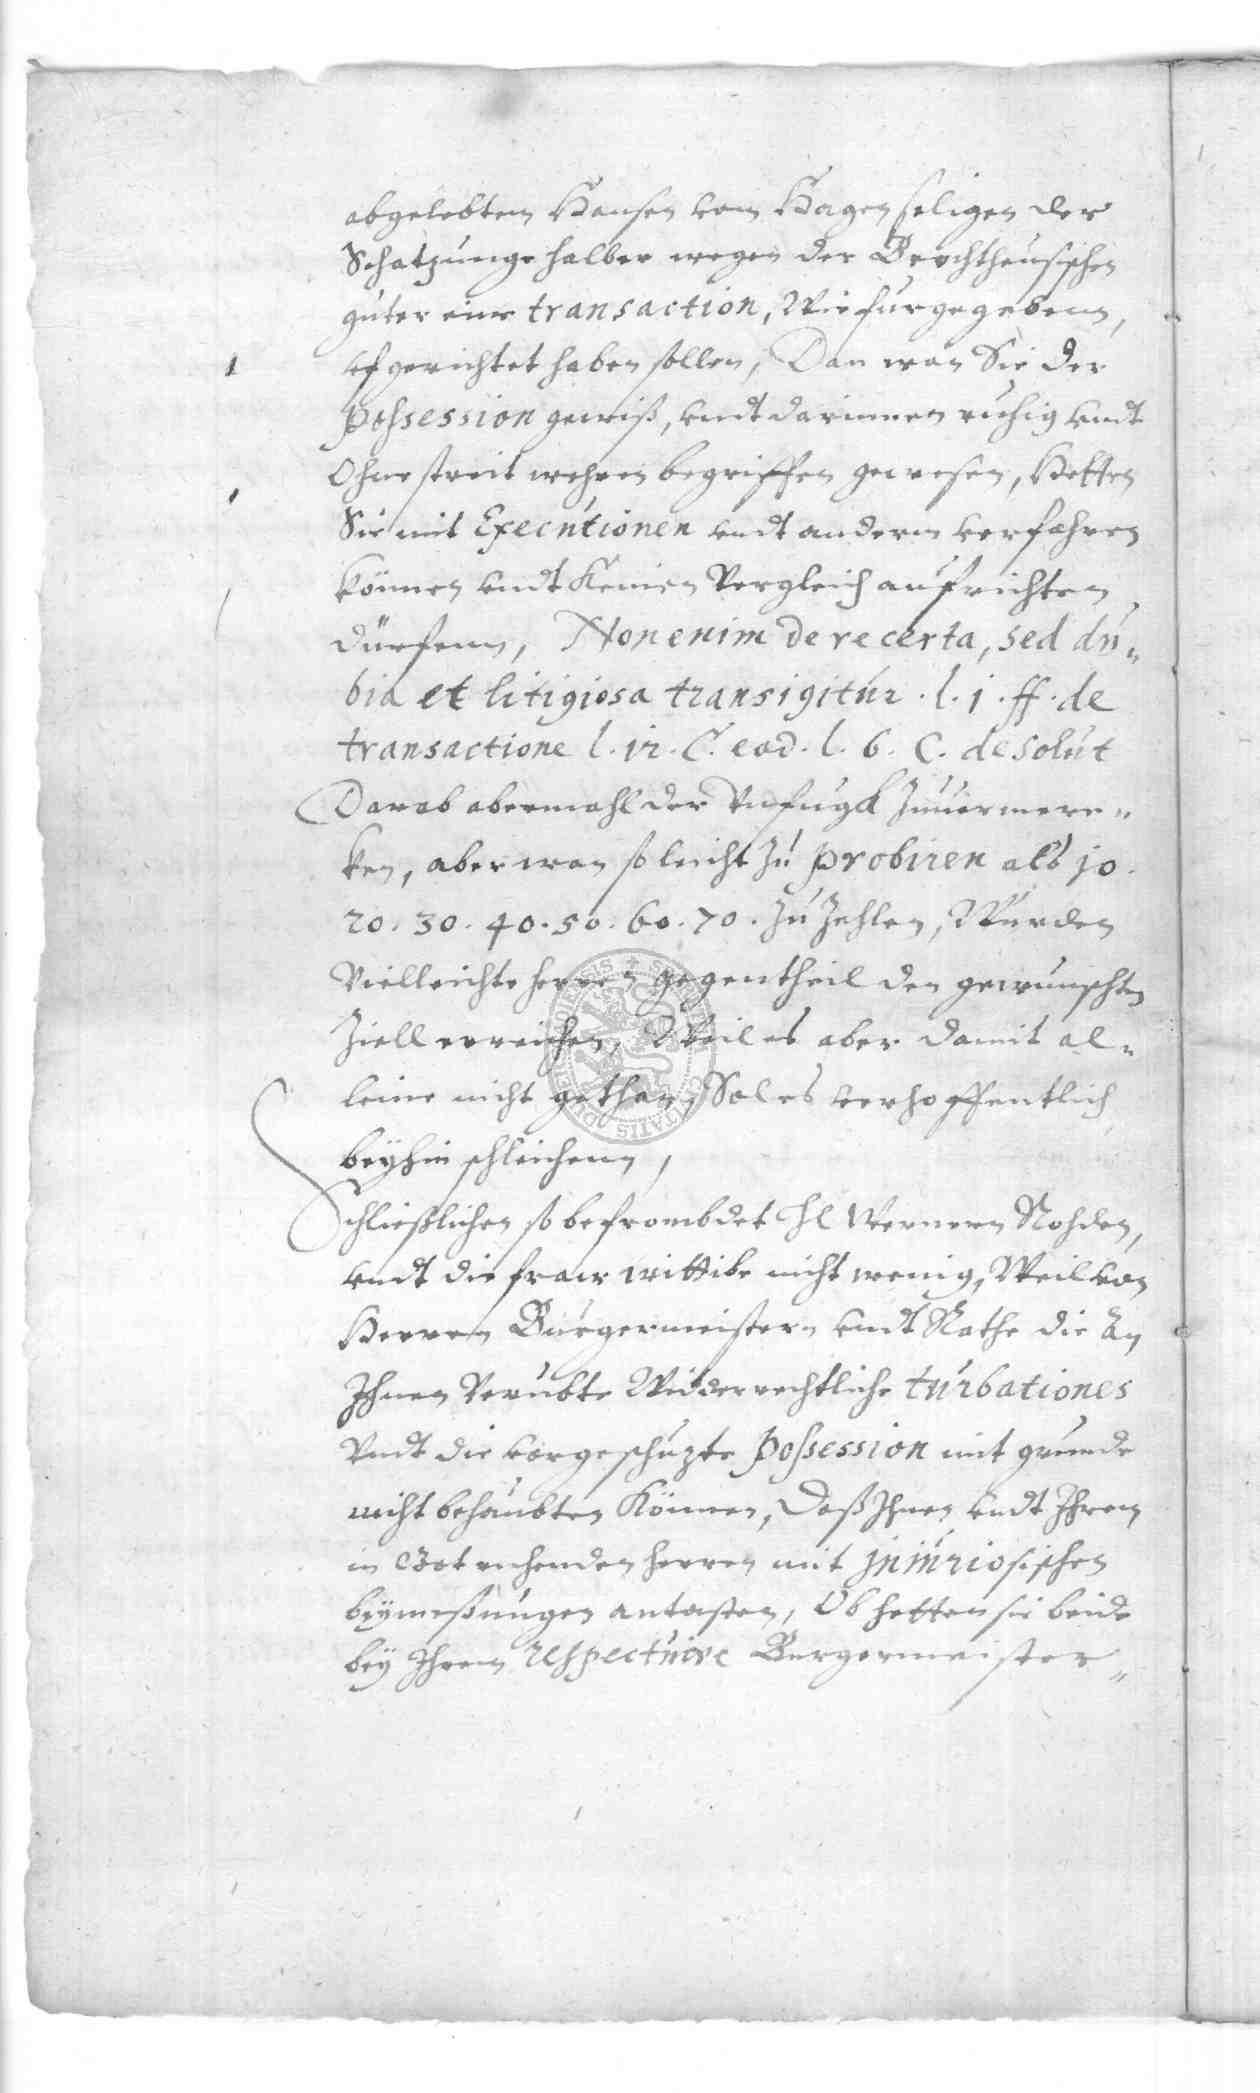 abgelebtem Hansen vom Hagen seligen der
Schatzunge halber wegen der Berchtheusischen
güter eine transaction, Wie fürgegebenn,
vfgerichtet haben sollen, Dan wan Sie der
possession gewiß, vndt darinnen ruhig vndt
Ohne streit wehren begriffen gewesen, Hetten
Sie mit Execútionen vndt anderm verfahren
können vndt Keinen Vergleich aufrichten
dürfenn, Non enim de re certa, sed dú„
bia et litigiosa transigitúr . l . j . ff . de
transactione l . 12 . C. eod . l . 6 . C. de solút
Darab abermahl der Vnfugk Zuuermerc„
ken, aber wan so leicht zú probiren alß jo .
20 . 30 . 40 . 50 . 60 . 70 . Zú Zehlen, Würden
Vielleichte herren gegentheil den gewünschten
Ziell erreichen, Weil es aber damit al„
leine nicht gethan, Sol es verhoffentlich
beyhin schleichenn,
Schließlichen so befrombdet Hl Wernern Rohden,
vndt die fraw wittibe nicht wenig, Weil von
Herren Búrgermeistern vndt Rathe die An
Ihnen Verubte Widderrechtliche túrbationes
Vndt die vorgeschúzte possession mit grunde
nicht behaubten Können, Daß Ihnen vndt Ihrem
in Got ruhenden herren mit Injúriosischen
beymeßúngen antasten, Ob hetten sie beide
bey Ihrem respectiúe Burgermeister„
SIGILLUM CIVITATIS